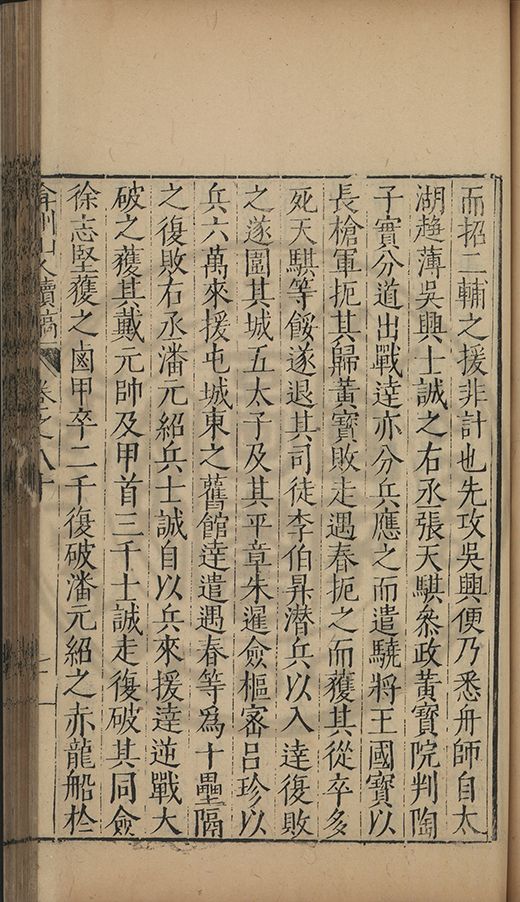 而招二輔之援非計也先攻吳興便乃悉舟師自太
湖趨薄吳興士誠之右丞張天騏叅政黃寶院判陶
子實分道出戰達亦分兵應之而遣驍將王國寶以
長槍軍扼其歸黃寶敗走遇春扼之而獲其從卒多
死天騏等餒遂退其司徒李伯昇潛兵以入達復敗
之遂圍其城五太子及其平章朱暹僉樞宻呂珍以
兵六萬來援屯城東之舊館達遣遇春等爲十壘隔
之復敗右丞潘元紹兵士誠自以兵來援達逆戰大
破之獲其戴元帥及甲首三千士誠走復破其同僉
徐志堅獲之鹵甲卒二千復破潘元紹之赤龍船於
弇州山人續稿 卷之八十